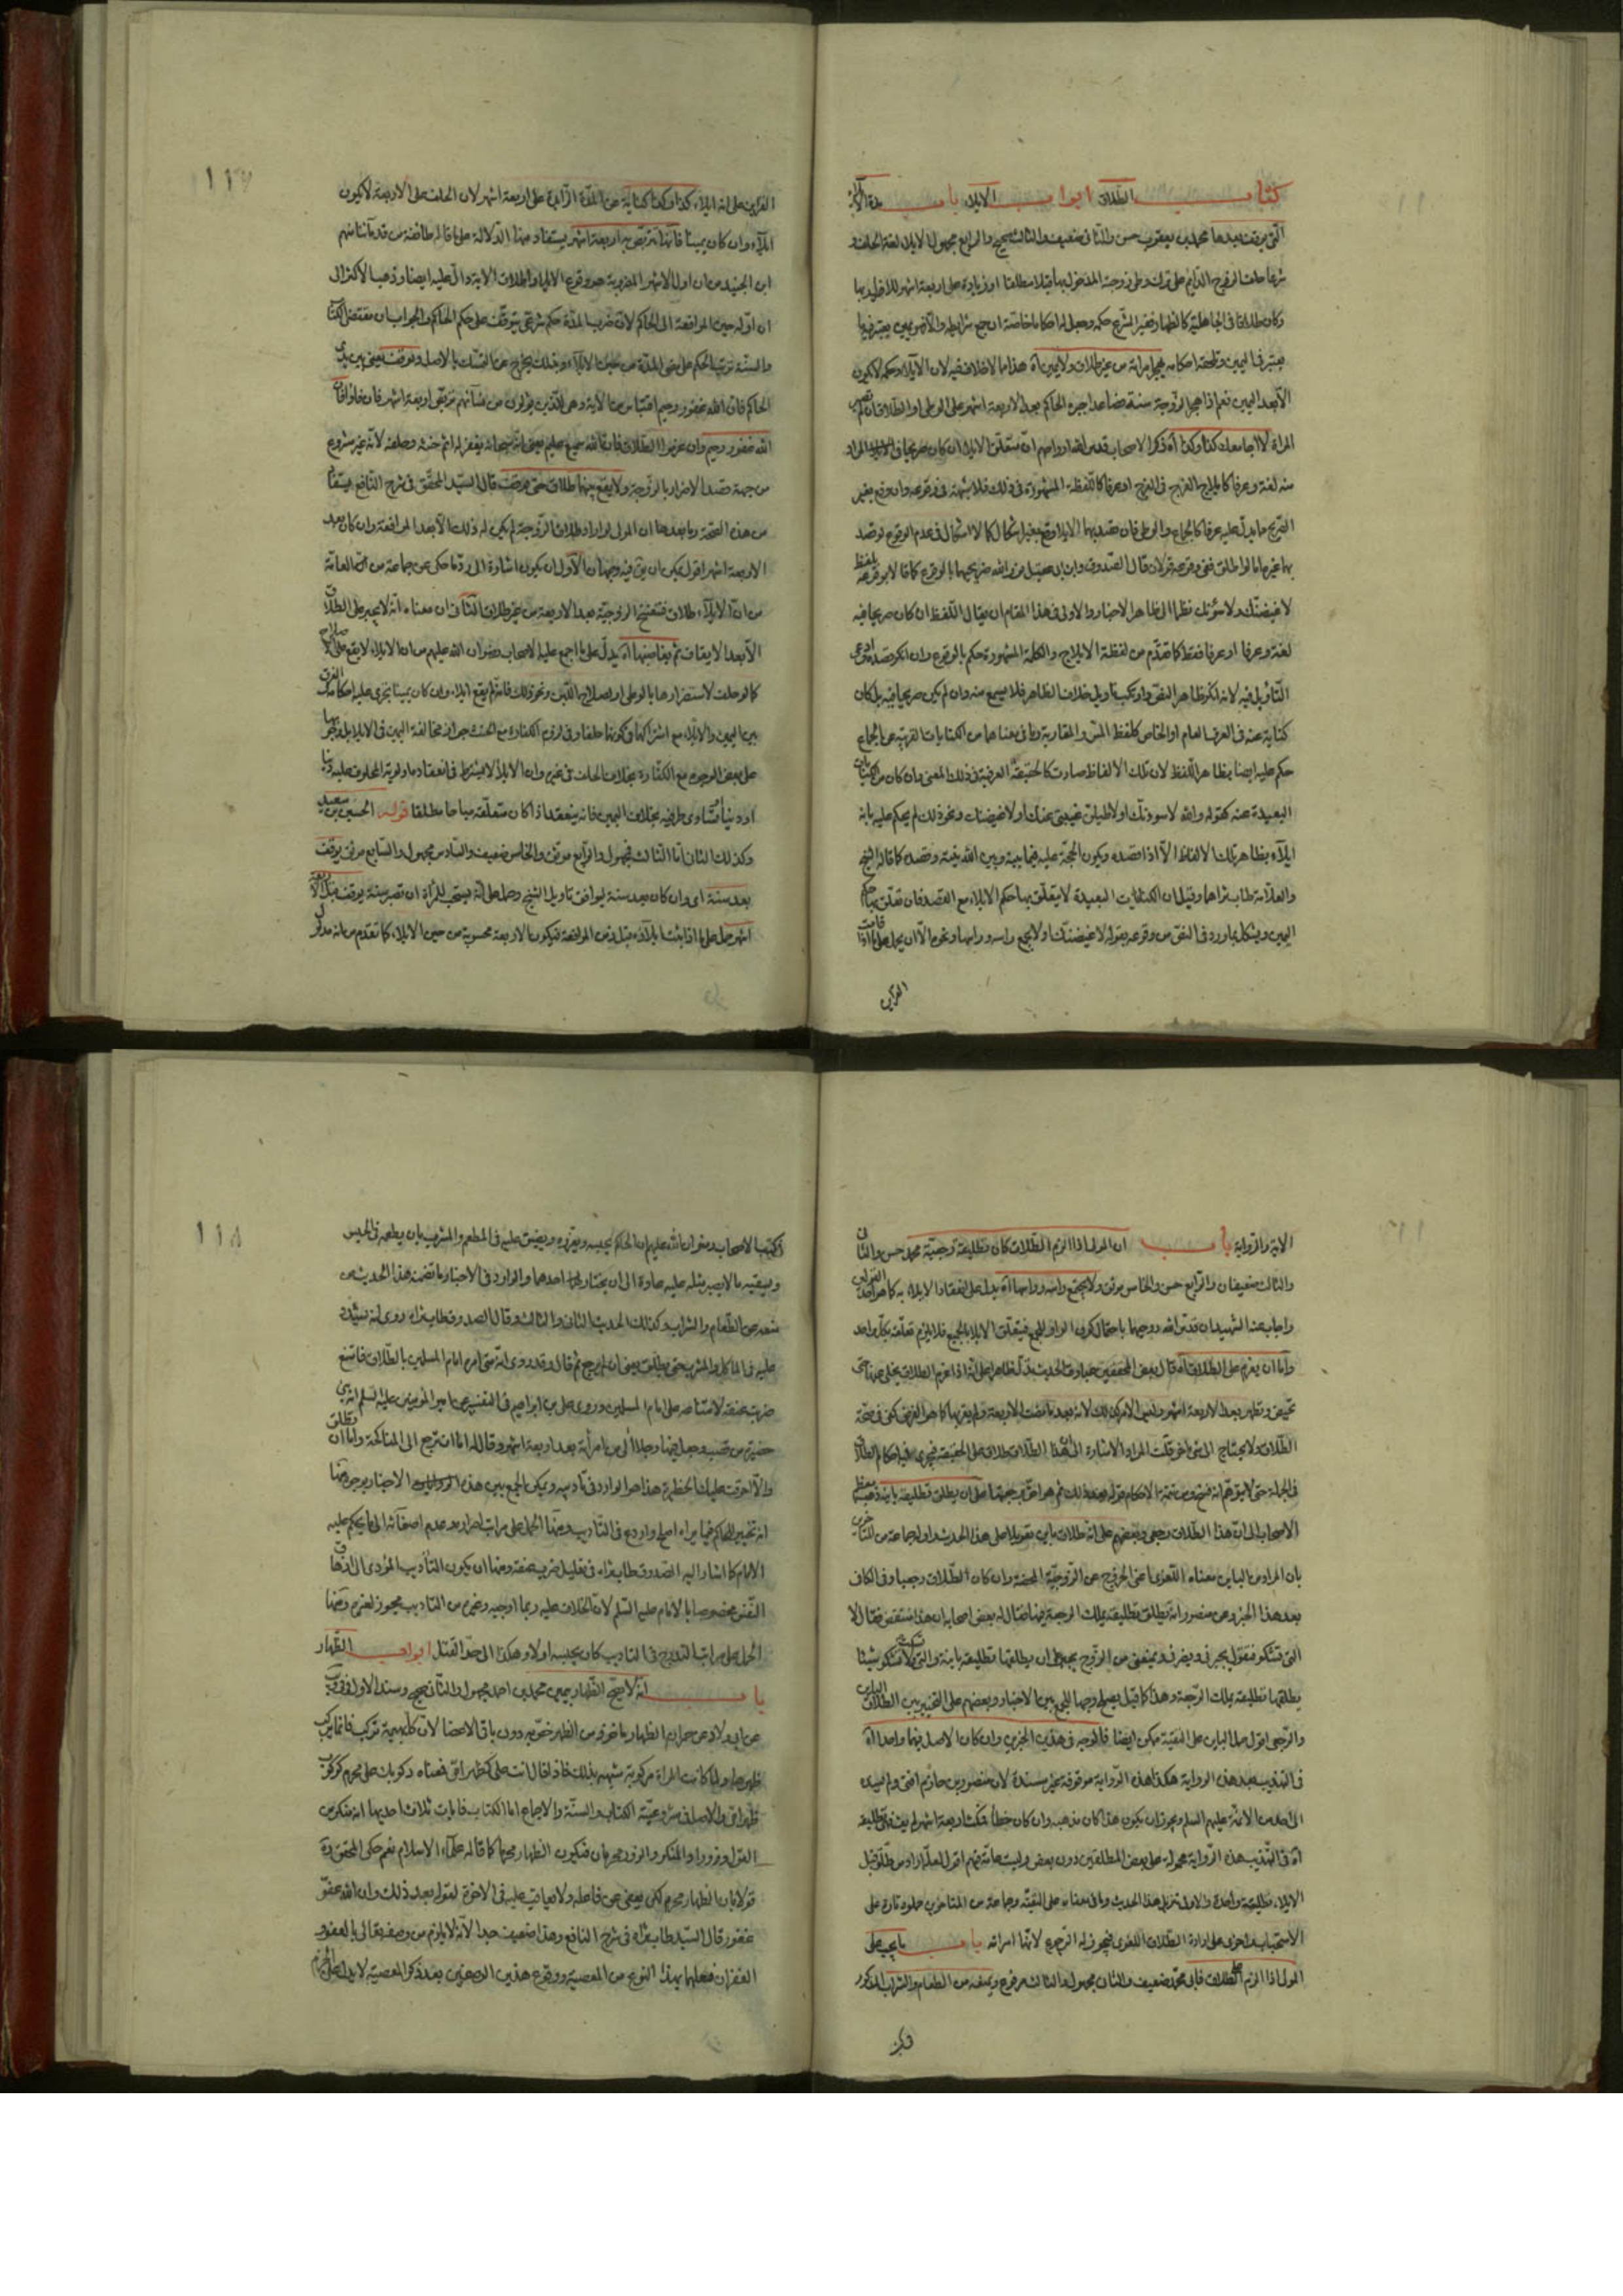 كتاب الطلاق ابواب الايلاء باب مدة الايلاء
التى يوقف بعدها محمد بن يعقوب حسن والثانى ضعيف والثالث صحيح والرابع مجهول الايلاء لغة الحلف و
شرعا حلف الزوج الدايم على ترك وطى زوجته المدخول بها قبلا مطلقا او زيادة على اربعة اشهر للاضرار بها
وكان طلاقا فى الجاهلية كالظهار فغير الشرع حكمه وجعل له احكاما خاصة ان جمع شرايطه والا فهو يمين يعتبر فيها
يعتبر فى اليمين وتلحقه احكامه يهجر امراته من غير طلاق ولا يمين آه هذا مما لا خلاف فيه لان الايلاء وحكمه لا يكون
الا بعد اليمين نعم اذا هجر الزوجة سنة فصاعدا اجبره الحاكم بعد الاربعة اشهر على الوطى او الطلاق ان لم
المراة لا اجامعك كذا وكذا آه ذكر الاصحاب قدس الله ارواحهم ان متعلق الايلاء ان كان صريحا فى المراد
منه لغة وعرفا كايلاج الفرج فى الفرج او عرفا كاللفظة المشهورة فى ذلك فلا شبهة فى وقوعه وان وقع بغير
الصريح مما يدل عليه عرفا كالجماع والوطى فان قصد بهما الايلاء وقع بغير اشكال كما لا اشكال فى عدم الوقوع لو قصد
بهما غيره اما لو اطلق ففى وقوعه قولان قال الصدوق وابن ابى عقيل
لاغيضنك ولاسوئنك نظرا الى ظاهر الاخبار والاولى فى هذا المقام ان يقال اللفظ ان كان صريحا فيه
لغة وعرفا او عرفا فقط كما تقدم من لفظة الايلاج والكلمة المشهورة حكم بالوقوع وان انكر قصده
التاويل فيه لانه انكر ظاهر النص وارتكب تاويل خلاف الظاهر فلا يسمع منه وان لم يكن صريحا فيه بل كان
كناية عنه فى العرف العام او الخاص كلفظ المس والمقاربة وما فى معناهما من الكنايات القريبة من الجماع
حكم عليه ايضا بظاهر اللفظ لان تلك الالفاظ صارت كالحقيقة العرفية فى ذلك المعنى وان كان من الكنايات
البعيدة عنه كقوله والله لاسوءنك او لاطيلن غيبتى عنك او لاغيضنك ونحو ذلك لم يحكم عليه بانه
ايلاء بظاهر تلك الالفاظ الا اذا قصده ويكون الحجة عليه فيما بينه وبين الله نيته وقصده كما قاله الشيخ
والعلامة طاب ثراهما وقيل ان الكنايات البعيدة لا يتعلق بها حكم الايلاء مع القصد فان تعلق بها حكم
اليمين ويشكل بما ورد فى النص من وقوعه بقوله لاغيضنك ولا يجمع راسه وراسها ونحوه الا ان يحمل على ما اذا قامت
القراين
١١٧
القراين على انه ايلاء كذا وكذا كناية عن المدة الزايدة على اربعة اشهر لان الحلف على الاربعة لا يكون
ايلاء وان كان يمينا فانه يتربص به اربعة اشهر يستفاد من هذا الدلالة على ما قاله طائفة من قدمائنا منهم
ابن الجنيد من ان اول الاشهر المضروبة هو وقوع الايلاء واطلاق الاية دال عليه ايضا وذهب الاكثر الى
ان اوله حين المرافعة الى الحاكم لان ضرب المدة حكم شرعى يتوقف على حكم الحاكم والجواب ان مقتضى الكتاب
والسنة ترتب الحكم على مضى المدة من حين الايلاء وذلك يخرج عن التمسك بالاصل ولو وقف يعنى بين يدى
الحاكم فان الله غفور رحيم اقتباس من الاية وهى للذين يؤلون من نسائهم تربص اربعة اشهر فان فاؤا فان
الله غفور رحيم وان عزموا الطلاق فان الله سميع عليم يعنى انه سبحانه يغفر له اثم حنثه وحلفه لانه غير مشروع
من جهة قصد الاضرار بالزوجة ولا يقع بينهما طلاق حتى يوقف قال السيد المحقق فى شرح النافع يستفاد
من هذه الصحيحة وما بعدها ان المولى لو اراد طلاق الزوجة لم يكن له ذلك الا بعد المرافعة وان كان بعد
الاربعة اشهر اقول يمكن ان يق فيه وجهان الاول ان يكون اشارة الى رد ما حكى عن جماعة من العامة
من ان الايلاء طلاق فتفسخ الزوجية بعد الاربعة من غير طلاق الثانى ان معناه انه لا يجبر على الطلاق
الا بعد الايقاف ثم يقاضيها آه يدل على ما اجمع عليه الاصحاب رضوان الله عليهم من ان الايلاء لا يقع على
كما لو حلف لاستضرارها بالوطى او لصلاح اللبن ونحو ذلك فانه لم يقع ايلاء وان كان يمينا يجرى عليه احكامه الفرق
بين اليمين والايلاء مع اشتراكهما فى كونهما حلفا وفى لزوم الكفارة مع الحنث جواز مخالفة اليمين فى الايلاء بل وجوبها
على بعض الوجوه مع الكفارة بخلاف الحلف فى غيره وان الايلاء لا يشترط فى انعقاده اولوية المحلوف عليه دينا
او دنيا او تساوى طرفيه بخلاف اليمين فانه ينعقد اذا كان متعلقه مباحا مطلقا قوله الحسين بن سعيد
وكذلك الثانى اما الثالث فمجهول والرابع موثق والخامس ضعيف والسادس مجهول والسابع موثق يوقف
بعد سنة اى وان كان بعد سنة ليوافق تاويل الشيخ وحملها على انه يستحب للمراة ان تصبر سنة يوقف قبل الاربعة
اشهر حمل على ما اذا ثبت ايلاؤه قبل زمن المرافعة فيكون الاربعة محسوبة من حين الايلاء كما تقدم من انه مدلول
الاية والرواية باب ان المولى اذا الزم الطلاق كان تطليقة رجعية محمد حسن والثانى
والثالث ضعيفان والرابع حسن والخامس موثق ولا يجتمع راسه وراسها آه يدل على انعقاد الايلاء به كما هو احد القولين
واجاب عنه الشهيدان قدس الله روحيهما باحتمال كون الواو للجمع فيتعلق الايلاء بالجميع فلا يلزم تعلقه بكل واحد
واما ان يعزم على الطلاق آه قال بعض المحققين عبارة الحديث تدل ظاهرا على انه اذا عزم الطلاق يخلى عنها حتى
تحيض وتطهر بعد الاربعة اشهر وليس الامر كذلك لانه بعد ما مضت الاربعة ولم يقربها كما هو الفرض كفى فى صحة
الطلاق ولا يحتاج الى شئ اخر قلت المراد الاشارة الى ان هذا الطلاق طلاق على الحقيقة فيجرى فيه احكام الطلاق
فى الجملة حتى لا يتوهم انه فسخ ومن تتمة الاحكام قوله بعد ذلك ثم هو احق برجعتها على ان يطلق تطليقة باينة ذهب معظم
الاصحاب الى ان هذا الطلاق رجعى وبعضهم على انه طلاق باين تعويلا على هذا الحديث واوله جماعة من المتاخرين
بان المراد من الباين معناه اللغوى اعنى الخروج عن الزوجية المحضة وان كان الطلاق رجعيا وفى الكافى
بعد هذا الخبر وعن منصور انه يطلق تطليقة يملك الرجعة فيها فقال له بعض اصحابه ان هذا منتقض فقال لا
التى تشكو فتقول يجبرنى ويضرنى ويمنعنى من الزوج يجبر على ان يطلقها تطليقة باينة والتى تسكت ولا تشكو شيئا
يطلقها تطليقة يملك الرجعة وهذا كما قيل يصلح وجها للجمع بين الاخبار وبعضهم على التخيير بين الطلاق الباين
والرجعى اقول حمل الباين على التقية ممكن ايضا فالوجه فى هذين الخبرين وان كان الاصل فيهما واحدا آه
فى التهذيب بعد هذه الرواية هكذا هذه الرواية موقوفة غير مسندة لان منصور بن حازم افتى ولم يسنده
الى احد من الائمة عليهم السلم ويجوز ان يكون هذا كان مذهبه وان كان خطا فمكث اربعة اشهر لم يفئ فهى تطليقة
آه فى التهذيب هذه الرواية محمولة على بعض المطلقين دون بعض وليست عامة فيهم اقول لعله اراد من طلق قبل
الايلاء تطليقة واحدة والاولى تنزيل هذا الحديث وما فى معناه على التقية وجماعة من المتاخرين حملوه تارة على
الاستحباب واخرى على ارادة الطلاق اللغوى فيجوز له الرجوع لانها امراته باب ما يجب على
المولى اذا الزم الطلاق فابى محمد ضعيف والثانى مجهول والثالث مرفوع ويمنعه من الطعام والشراب المذكور
فى كتب
١١٨
فى كتب الاصحاب رضوان الله عليهم ان الحاكم يحبسه ويعزره ويضيق عليه فى المطعم والمشرب بان يطعمه فى الحبس
ويسقيه ما لا يصبر مثله عليه عادة الى ان يختار احدهما والوارد فى الاخبار ما تضمنه هذا الحديث من
منعه من الطعام والشراب وكذلك الحديث الثانى والثالث وقال الصدوق طاب ثراه روى انه يشدد
عليه فى الماكل والمشرب حتى يطلق يعنى ان لم يرجع ثم قال وقد روى انه متى امره امام المسلمين بالطلاق فامتنع
ضرب عنقه لامتناعه على امام المسلمين وروى على بن ابراهيم فى التفسير عن امير المؤمنين عليه السلم انه بنى
حضيرة من قصب وجعل فيها رجلا الى من امراته بعد اربعة اشهر وقال له اما ان ترجع الى المناكحة واما ان تطلق
والا احرقت عليك الحظيرة هذا هو الوارد فى تاديبه ويمكن الجمع بين هذه الاخبار بوجوه منها
انه تخيير للحاكم فيما يراه اصلح واردع فى التاديب ومنها الحمل على مراتب اصراره وعدم اصغائه الى ما يحكم عليه
الامام كما اشار اليه الصدوق طاب ثراه فى تعليل ضرب عنقه ومنها ان يكون التاديب المؤدى الى ازهاق
النفس مخصوصا بالامام عليه السلم لان الخلاف عليه ربما اوجبه وغيره من التاديب يجوز لغيره ومنها
الحمل على مراتب التدرج فى التاديب كان يحبسه اولا وهكذا الى حد القتل ابواب الظهار
باب انه لا يصح الظهار بيمين محمد بن احمد مجهول والثانى صحيح وسند الاول
عن ابى ولاد عن حمران الظهار ماخوذ من الظهر خص به دون باقى الاعضا لان كل بهيمة تركب فانما يركب
ظهرها ولما كانت المراة مركوبة شبهت بذلك فاذا قال انت على كظهر امى فمعناه ركوبك على محرم كركوب
ظهر امى والاصل فى مشروعيته الكتاب والسنة والاجماع اما الكتاب فايات ثلاث احديها انه منكر من
القول وزورا والمنكر والزور محرمان فيكون الظهار محرما كما قاله علماء الاسلام نعم حكى المحقق ره
قولا بان الظهار محرم لكن يعفى عن فاعله ولا يعاقب عليه فى الاخرة لقوله بعد ذلك وان الله عفو
غفور قال السيد طاب ثراه فى شرح النافع وهذا ضعيف جدا لانه لا يلزم من وصفه تعالى بالعفو و
الغفران فعلهما بهذا النوع من المعصية ووقوع هذين الوصفين بعد ذكر المعصية لا يدل على الجزم